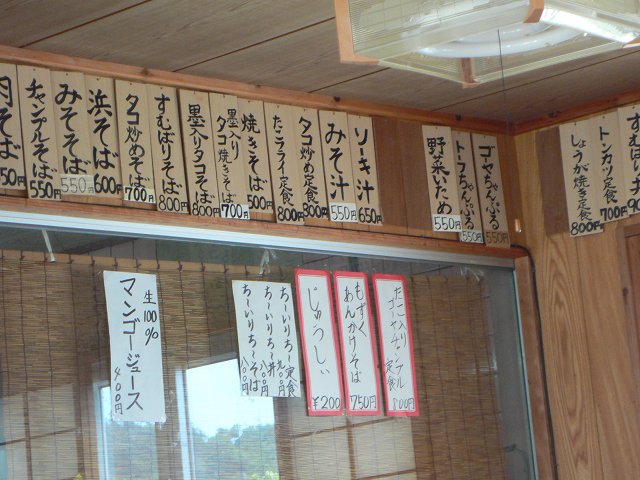 トンカツ定食
700円
しょうが焼き定食
800円
ゴーヤちゃんぷる
550円
トーフちゃんぷる
550円
野菜いため
550円
ソキ汁
650円
みそ汁
550円
タコ炒め定食
800円
たこライス定食
800円
焼きそば
500円
墨入り
タコ焼きそば
700円
墨入りタコそば
800円
すむばりそば
800円
タコ炒めそば
700円
浜そば
600円
みそそば
550円
チャンプルそば
550円
肉そば
50円
たこ入り
ゴーヤチャンプル定食
800円
もずく
あんかけそば
750円
じゅうしい
¥200
ちーいりちー定食
九〇〇円
ちーいりちー丼
八〇〇円
ちーいりちーそば
八〇〇円
生100%
マンゴージュース
400円